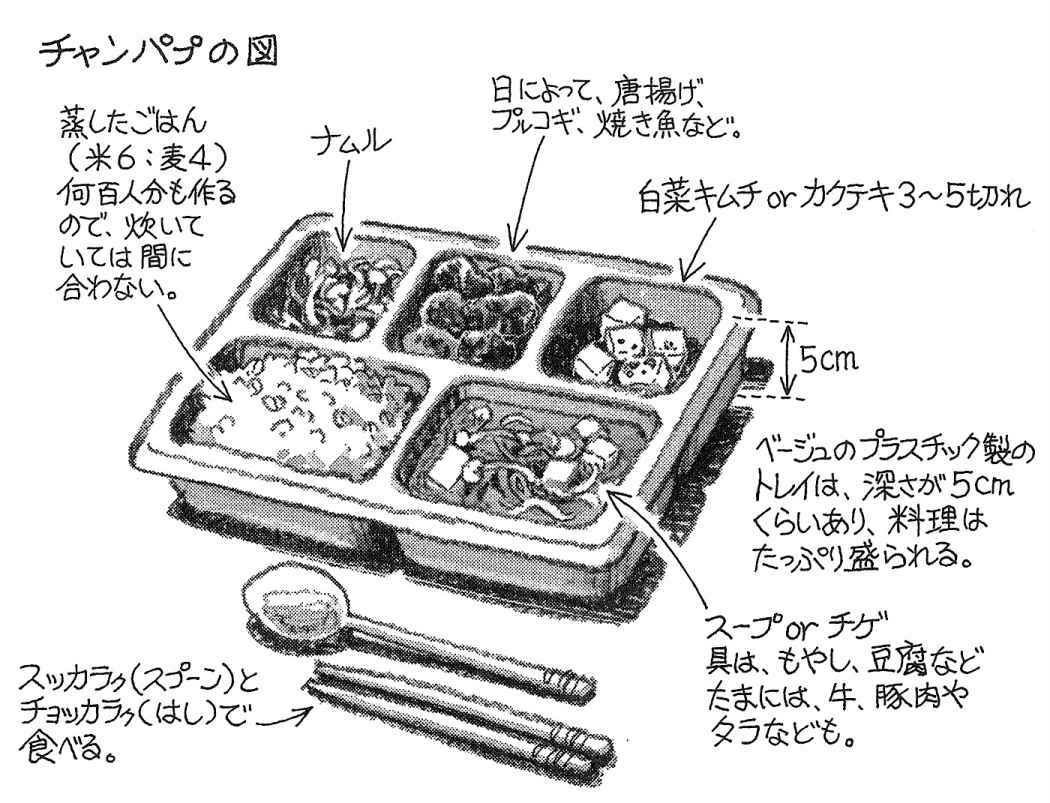 チャンパプの図
蒸したごはん
(米6:麦4)
何百人分も作る
ので、炊いて
いては間に
合わない。
ナムル
日によって、唐揚げ、
プルコギ、焼き魚など。
白菜キムチorカクテキ3〜5切れ
5cm
ベージュのプラスチック製の
トレイは、深さが5cm
くらいあり、料理は
たっぷり盛られる。
スープorチゲ
具は、もやし、豆腐など
たまには、牛、豚肉や
タラなども。
スッカラク(スプーン)と
チョッカラク(はし)で
食べる。